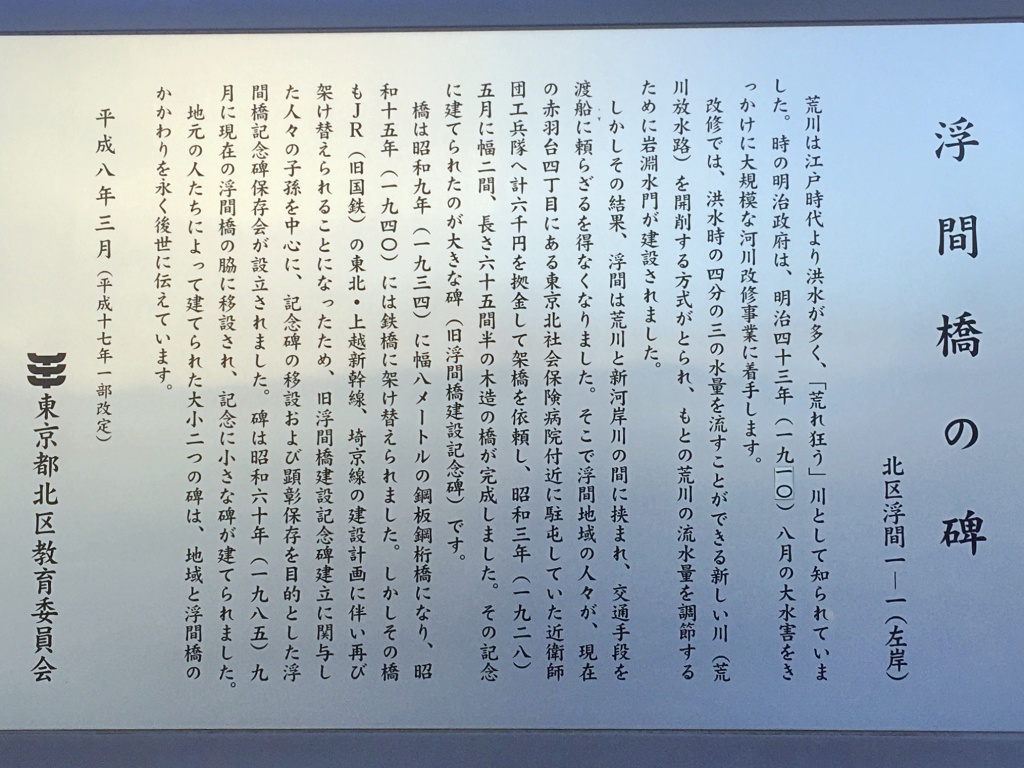 浮間橋の碑
北区浮間一―一(左岸)
荒川は江戸時代より洪水が多く、「荒れ狂う」川として知られていま
した。時の明治政府は、明治四十三年(一九一〇)八月の大水害をき
っかけに大規模な河川改修事業に着手します。
改修では、洪水時の四分の三の水量を流すことができる新しい川(荒
川放水路)を開削する方式がとられ、もとの荒川の流水量を調節する
ために岩淵水門が建設されました。
しかしその結果、浮間は荒川と新河岸川の間に挟まれ、交通手段を
渡船に頼らざるを得なくなりました。そこで浮間地域の人々が、現在
の赤羽台四丁目にある東京北社会保険病院付近に駐屯していた近衛師
団工兵隊へ計六千円を拠金して架橋を依頼し、昭和三年(一九二八)
五月に幅二間、長さ六十五間半の木造の橋が完成しました。その記念
に建てられたのが大きな碑(旧浮間橋建設記念碑)です。
橋は昭和九年(一九三四)に幅八メートルの鋼板鋼桁橋になり、昭
和十五年(一九四〇)には鉄橋に架け替えられました。しかしその橋
もJR(旧国鉄)の東北・上越新幹線、埼京線の建設計画に伴い再び
架け替えられることになったため、旧浮間橋建設記念碑建立に関与し
た人々の子孫を中心に、記念碑の移設および顕彰保存を目的とした浮
間橋記念碑保存会が設立されました。碑は昭和六十年(一九八五)九
月に現在の浮間橋の脇に移設され、記念に小さな碑が建てられました。
地元の人たちによって建てられた大小二つの碑は、地域と浮間橋の
かかわりを永く後世に伝えています。
平成八年三月(平成十七年一部改定)
東京都北区教育委員会